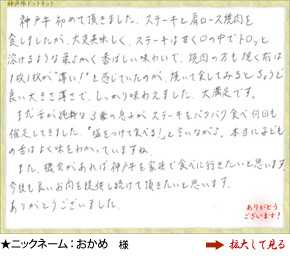 神戸牛ドットネット
神戸牛初めて頂きました。ステーキと肩ロース焼肉を
食しましたが、大変美味しく、ステーキは甘く口の中でトロッと
溶けるような柔らかく香ばしい味わいで、焼肉の方も焼く前は
1枚1枚が"薄い!"と感じていたのが、焼いて食してみるとちょうど
良い大きさ厚さで、しっかり味わえました。大満足です。
また舌が純粋な3歳の息子がステーキをパクパク食べ何回も
催促してきました。"塩をつけて食べる!"と言いながら。本当に子ども
の舌はよく味をわかっていますね。
また、機会があれば神戸牛を家族で食べに行きたいと思います。
今後も良いお肉を提供し続けて頂きたいと思います。
ありがとうございました。
ありがとう
ございます!
★ニックネーム：おかめ 様
拡大して見る